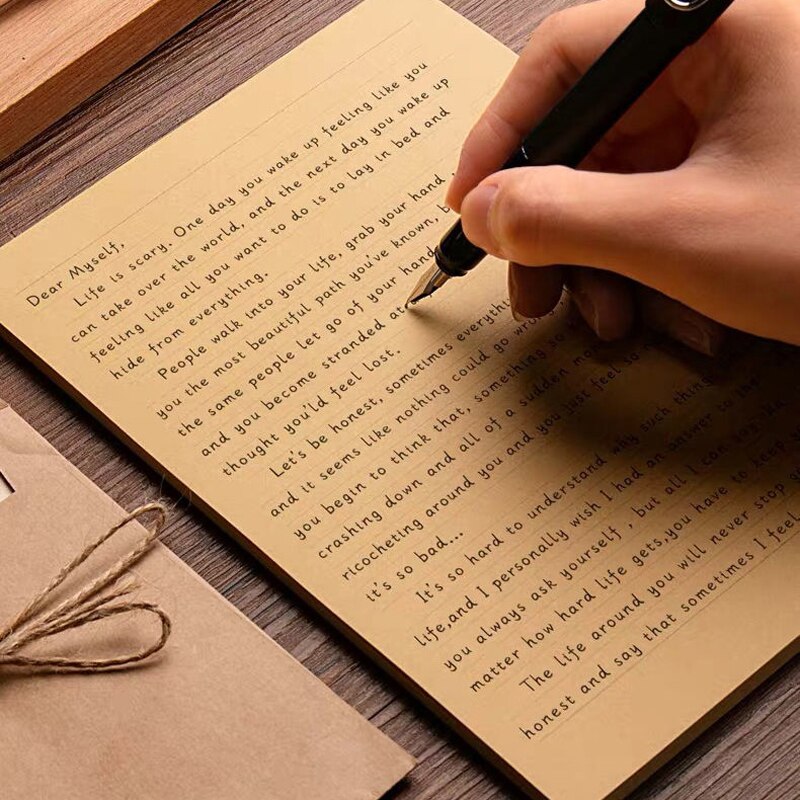 Dear Myself,
Life is scary. One day you wake up feeling like you
can take over the world, and the next day you wake up
feeling like all you want to do is to lay in bed and
hide from everything.
People walk into your life, grab your hand ,
you the most beautiful path you've known, b
the same people let go of your hand
and you become stranded at
thought you'ld feel lost.
Let's be honest, sometimes everythi
and it seems like nothing could go wrong,
you begin to think that, something so
crashing down and all of a sudden mo
ricocheting around you and you just feel
it's so bad...
It's so hard to understand why such thing
life,and I personally wish I had an answer to the
you always ask yourself , but all I can say,
matter how hard life gets,you have to keep
The life around you will never stop
honest and say that sometimes I feel